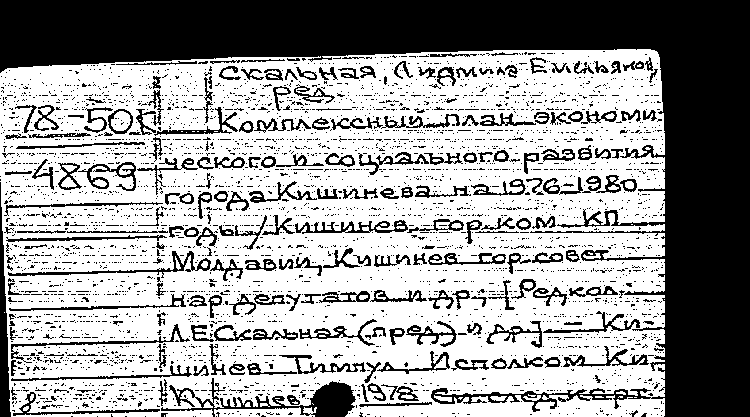 Скальная, Людмила Емельяновн,
ред.
78-50
Комплексный план экономи-
4869
ческого и социального развития
города Кишинева на 1976-1980
годы / Кишинев. гор. ком. КП
Молдавии, Кишинев. гор. совет
нар. депутатов и др.; [Редкол.:
Л.Е. Скальная (пред.) и др.] — Ки-
шинев: Тимпул: Исполком Ки
8
Кишинев, 1978 См. след. карт.